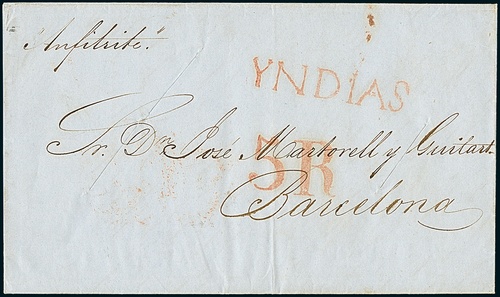 "Anfitrite".
YNDIAS
Sr. Dn. José Martorell y Guitart.
5R
Barcelona